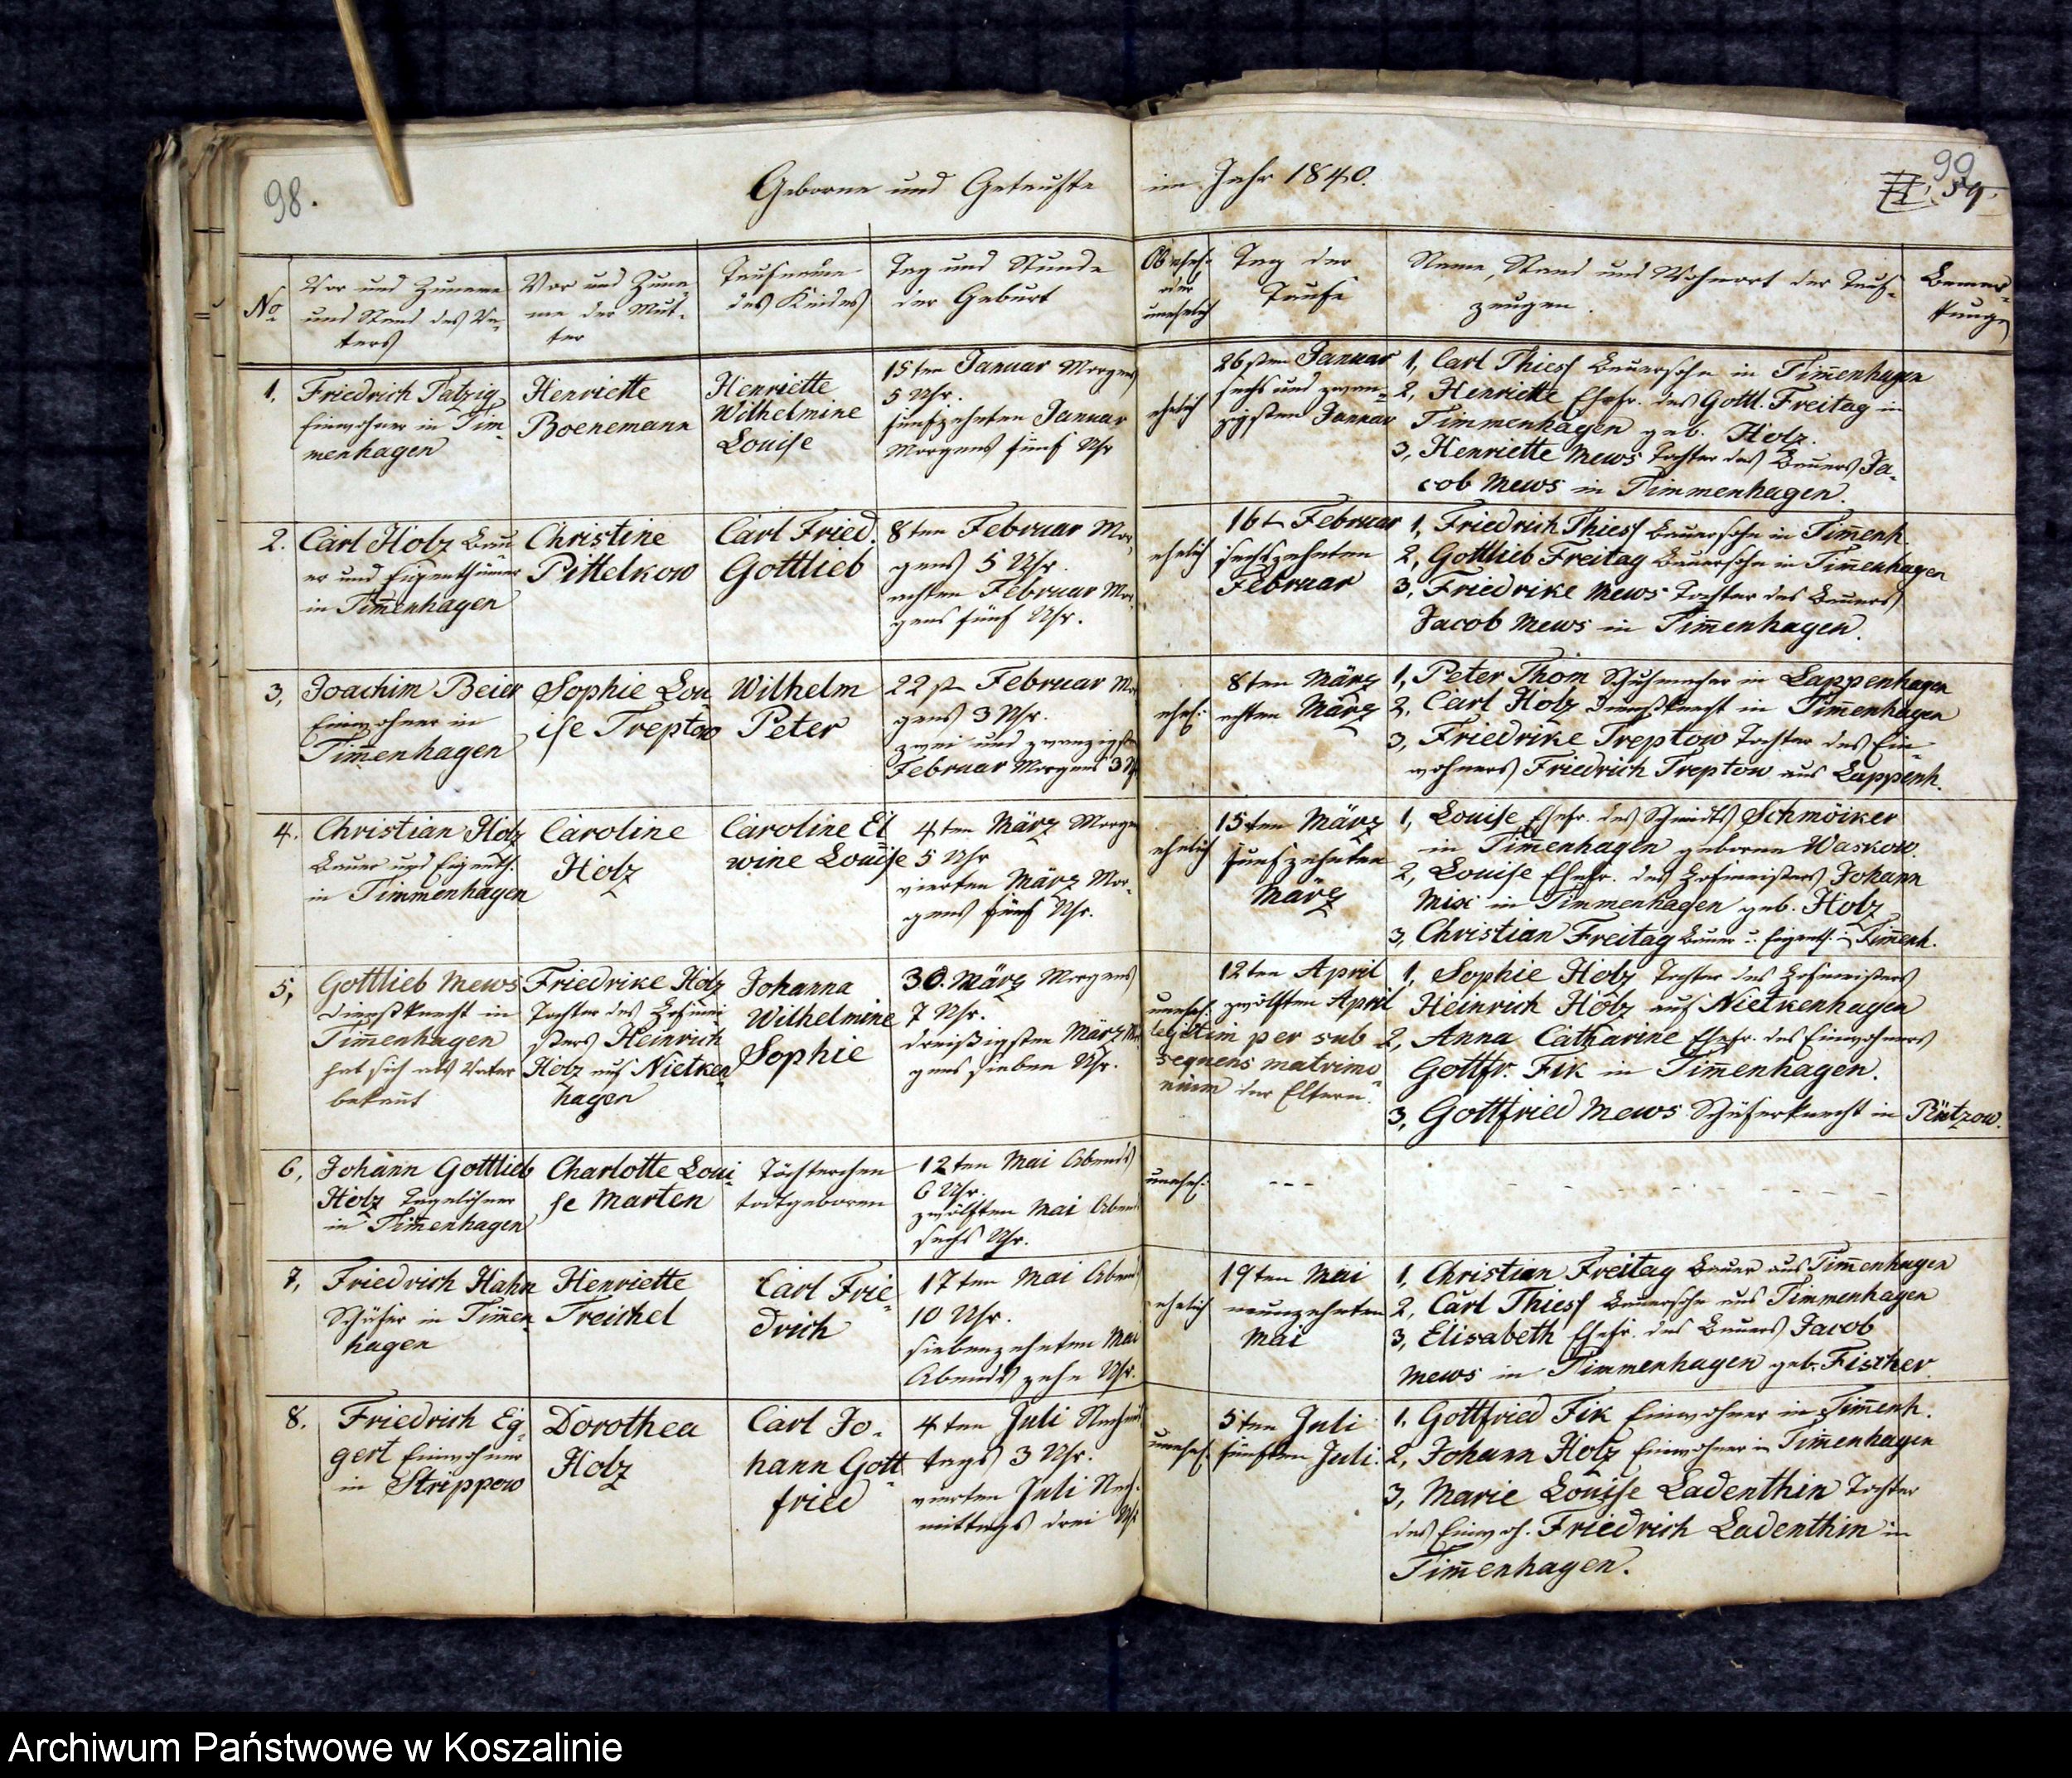 98.
Geborne und Getaufte
im Jahr 1840.
99
59.
No
Vor und Zuname
und Stand des Va-
ters
Vor und Zuna-
me der Mut-
ter
Taufname
des Kindes
Tag und Stunde
der Geburt
Ob ehel:
oder
unehelich
Tag der
Taufe
Name, Stand und Wohnort der Tauf-
zeugen.
Bemer-
kungen
1.
Friedrich Patzig
Einwohner in Tim-
menhagen
Henriette
Boenemann
Henriette
Wilhelmine
Louise
15ten Januar Morgens
5 Uhr.
fünfzehnten Januar
Morgens fünf Uhr
ehelich
26sten Januar
sechs und zwan-
zigsten Januar
1, Carl Thiess Bauersohn in Tim̄enhagen
2, Henriette Ehefr. des Gottl. Freitag in
Timmenhagen geb. Holz.
3, Henriette Mews Tochter des Bauers Ja-
cob Mews in Timmenhagen.
2.
Carl Holz Bau
er und Eigenthümer
in Tim̄enhagen
Christine
Pittelkow
Carl Fried.
Gottlieb
8ten Februar Mor-
gens 5 Uhr.
achten Februar Mor-
gens fünf Uhr.
ehelich
16t Februar
sechszehnten
Februar
1, Friedrich Thiess Bauersohn in Tim̄enh.
2, Gottlieb Freitag Bauersohn in Tim̄enhagen
3, Friedrike Mews Tochter des Bauers
Jacob Mews in Tim̄enhagen.
3,
Joachim Beier
Einwohner in
Tim̄enhagen
Sophie Lou
ise Treptow
Wilhelm
Peter
22st Februar Mor
gens 3 Uhr.
zwei und zwanzigsten
Februar Morgens 3 Uhr
ehel:
8ten März
achten März
1, Peter Thom Schuhmacher in Lappenhagen
2, Carl Holz Dienstknecht in Tim̄enhagen
3, Friedrike Treptow Tochter des Ein-
wohners Friedrich Treptow aus Lappenh.
4.
Christian Holz
Bauer und Eigenth.
in Timmenhagen
Caroline
Holz
Caroline El
wine Louise
4ten März Morgens
5 Uhr
vierten März Mor-
gens fünf Uhr.
ehelich
15ten März
fünfzehnten
März
1, Louise Ehefr. des Schmidts Schmöiker
in Tim̄enhagen geborne Waskow.
2, Louise Ehefr. des Hofmeisters Johann
Mix in Timmenhagen geb. Holz
3, Christian Freitag Bauer u. Eigenth. in Tim̄enh.
5,
Gottlieb Mews
Dienstknecht in
Tim̄enhagen
hat sich als Vater
bekan̄t
Friedrike Holz
Tochter des Hofmei
sters Heinrich
Holz auf Nietken
hagen
Johanna
Wilhelmine
Sophie
30. März Morgens
7 Uhr.
dreißigsten März Mor
gens sieben Uhr.
unehel:
legitim per sub
sequens matrimo
nium der Eltern.
12ten April
zwölften April
1, Sophie Holz Tochter des Hofmeisters
Heinrich Holz auf Nietkenhagen
2, Anna Catharine Ehefr. des Einwohners
Gottfr. Fik in Tim̄enhagen.
3, Gottfried Mews Schäferknecht in Püntzow.
6,
Johann Gottlieb
Holz Tagelöhner
in Tim̄enhagen
Charlotte Loui
se Marten
Töchterchen
todtgeboren
12ten Mai Abends
6 Uhr.
zwölften Mai Abends
sechs Uhr.
unehel:
7,
Friedrich Hahn
Schäfer in Tim̄en
hagen
Henriette
Treichel
Carl Frie-
drich
17ten Mai Abends
10 Uhr.
siebenzehnten Mai
Abends zehn Uhr.
ehelich
19ten Mai
neunzehnten
Mai
1, Christian Freitag Bauer aus Tim̄enhagen
2, Carl Thiess Bauersohn aus Timmenhagen
3, Elisabeth Ehefr. des Bauers Jacob
Mews in Timmenhagen geb. Fischer.
8.
Friedrich Eg-
gert Einwohner
in Strippow
Dorothea
Holz
Carl Jo-
hann Gott
fried
4ten Juli Nachmit
tags 3 Uhr.
vierten Juli Nach-
mittags drei Uhr
unehel.
5ten Juli
fünften Juli.
1. Gottfried Fik Einwohner in Tim̄enh.
2, Johann Holz Einwohner in Tim̄enhagen
3, Marie Louise Ladenthin Tochter
des Einwoh. Friedrich Ladenthin in
Tim̄enhagen.
Archiwum Państwowe w Koszalinie